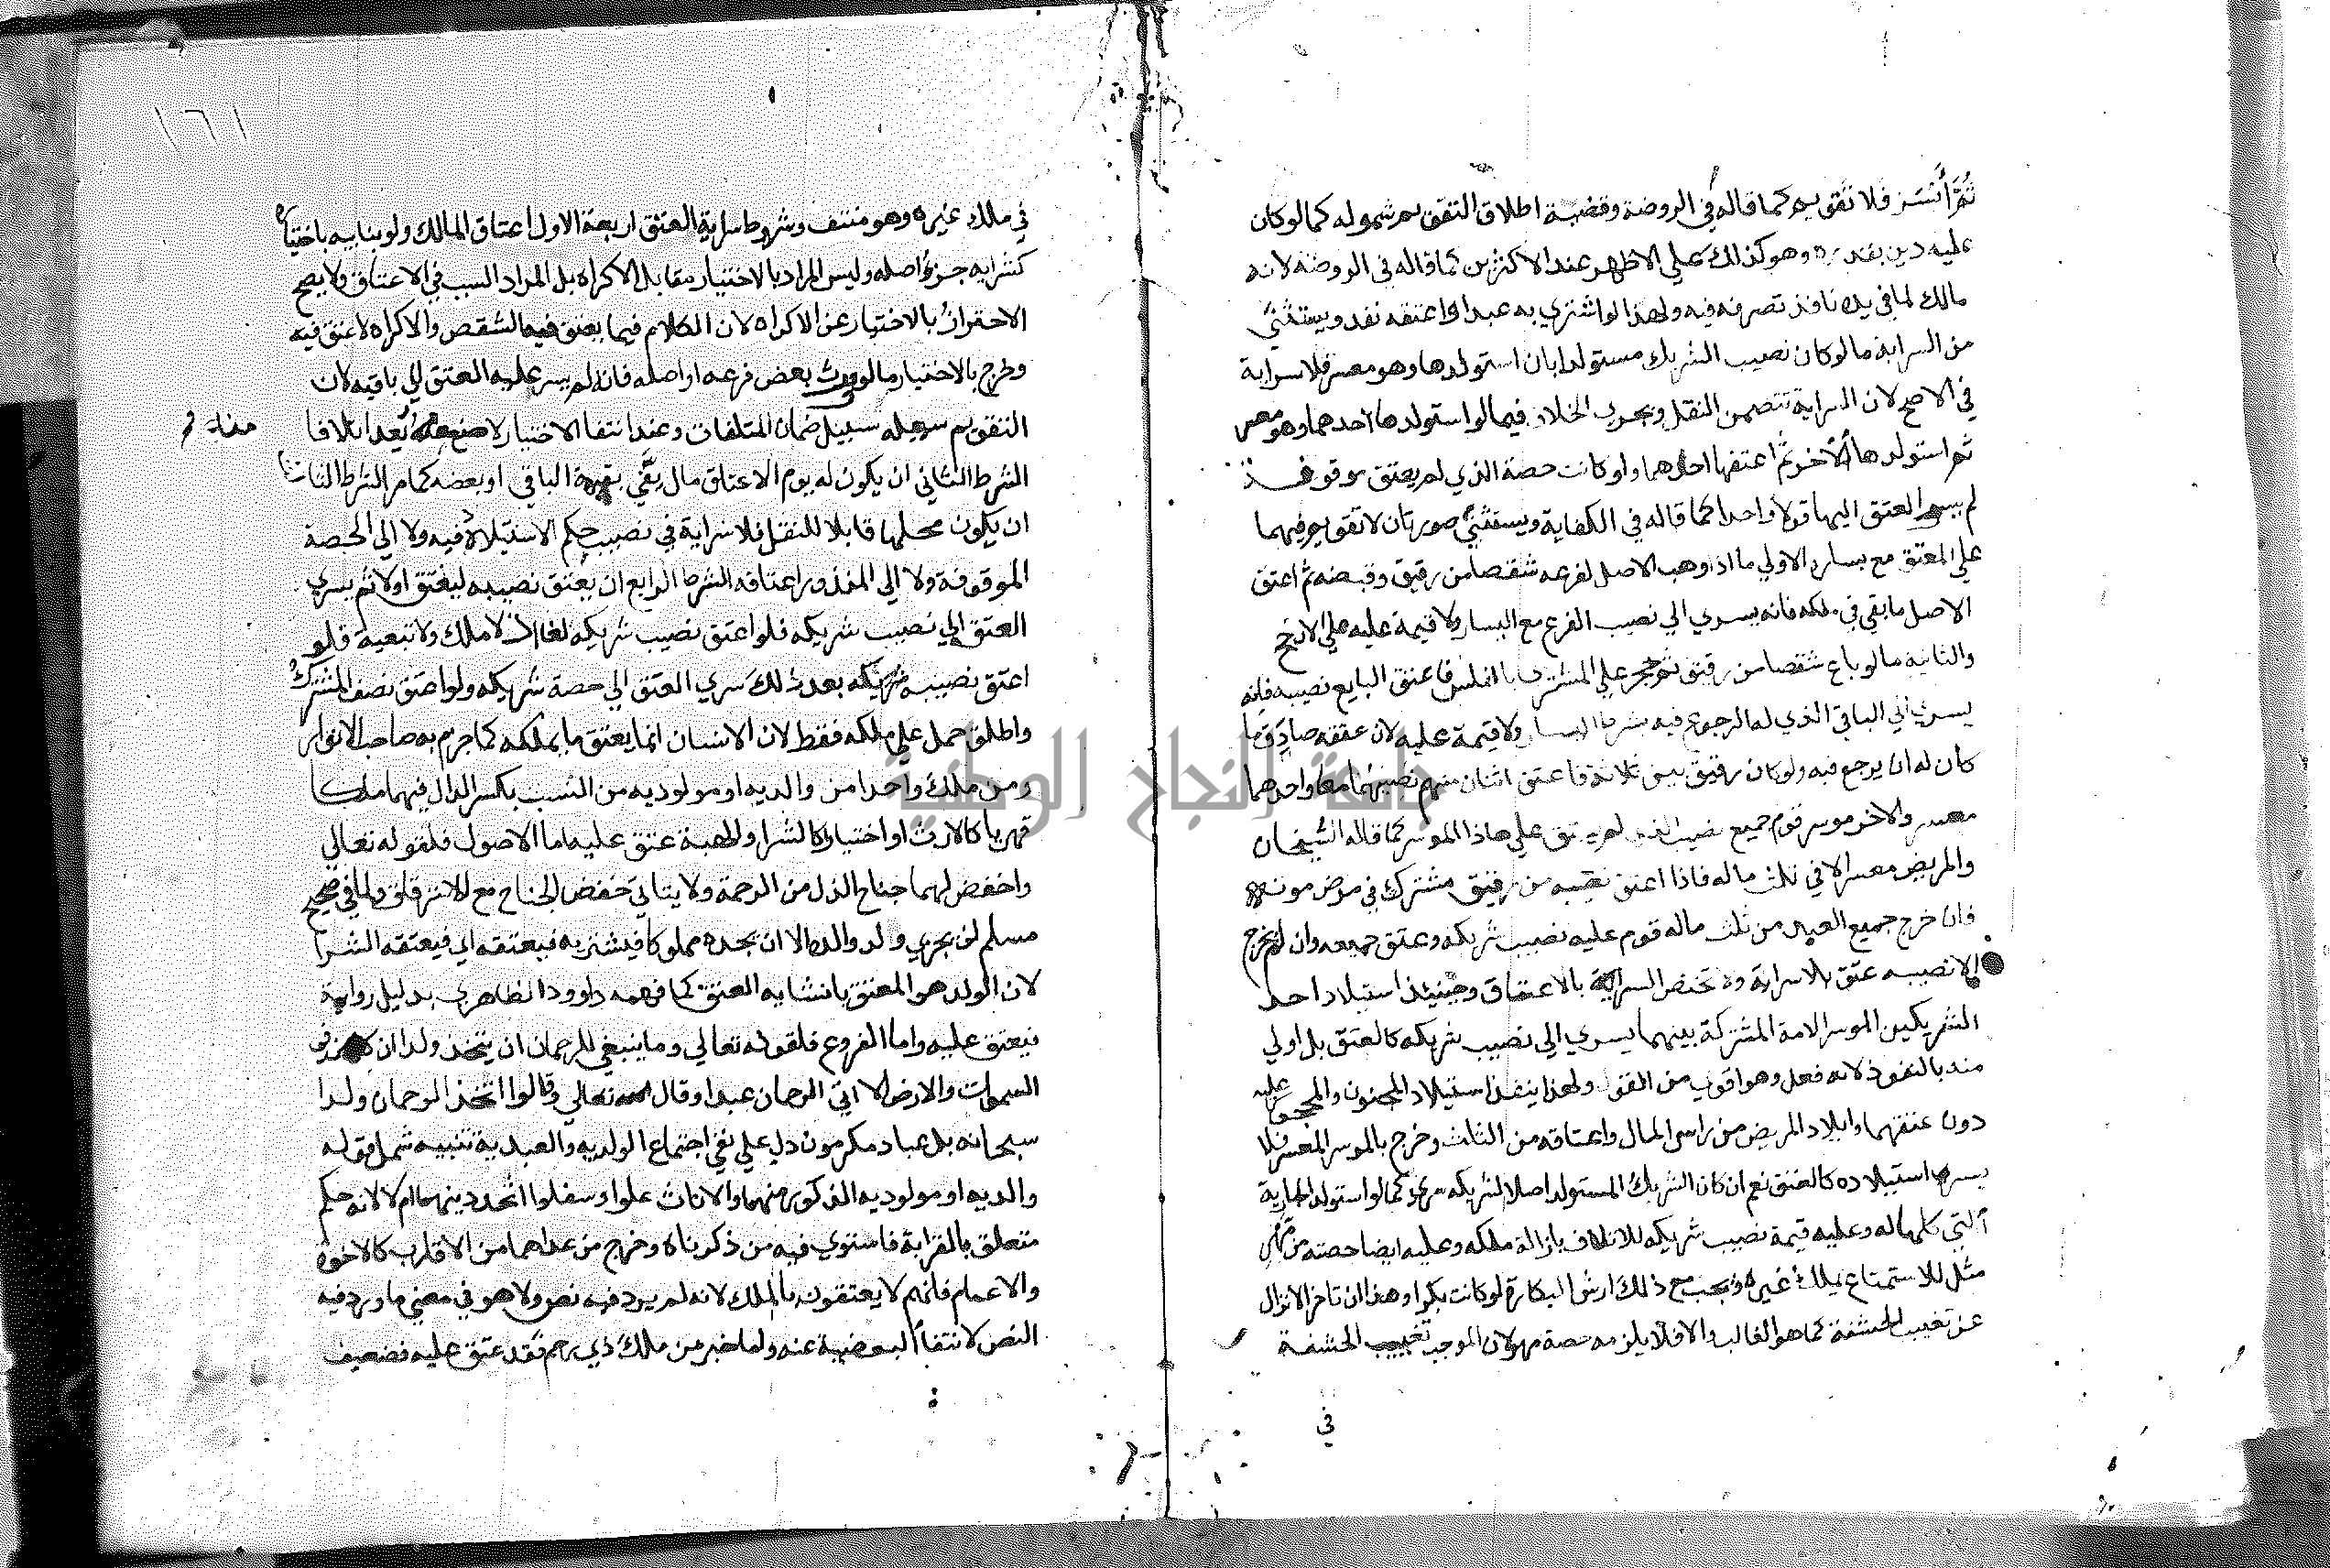 ثم أيسر فلا تقويم كما قاله في الروضة وقضية اطلاق التقويم شموله كما لو كان
عليه دين بقدره وهو كذلك على الاظهر عند الاكثرين كما قاله في الروضة لانه
مالك لما في يده نافذ تصرفه فيه ولهذا لو اشتري به عبدا واعتقه نفد ويستثني
من السراية ما لو كان نصيب الشريك مستولدا بان استولدها وهو معسر فلا سراية
في الاصح لان السراية تتضمن النقل ويجري الخلاف فيما لو استولدها احدهما وهو معسر
ثم استولدها الآخر ثم اعتقها احدهما ولو كانت حصة الذي لم يعتق موقوفة
لم يسر العتق اليها قولا واحدا كما قاله في الكفاية ويستثني صورتان لا تقويم فيهما
علي المعتق مع يساره الاولي ما اذا وهب الاصل لفرعه شقصا من رقيق وقبضه ثم اعتق
الاصل ما بقي في ملكه فانه يسري الي نصيب الفرع مع اليسار ولا قيمة عليه علي الارجح
والثانية ما لو باع شقصا من رقيق ثم حجر علي المشتري بالفلس فاعتق البايع نصيبه فانه
يسري الي الباقي الذي له الرجوع فيه بشرط اليسار ولا قيمة عليه لان عتقه صادف ما
كان له ان يرجع فيه ولو كان رقيق بين ثلاثة فاعتق اثنان منهم نصيبهما معا واحدهما
معسر والاخر موسر قوم جميع نصيب الذي لم يعتق علي هاذا الموسر كما قاله الشيخان
والمريض معسر الا في ثلث ماله فاذا اعتق نصيبه من رقيق مشترك في مرض موته
فان خرج جميع العبد من ثلث ماله قوم عليه نصيب شريكه وعتق جميعه وان لم يخرج
الا نصيبه عتق بلا سراية ولا تختص السراية بالاعتاق وحينئذ استيلاد احد
الشريكين الموسر الامة المشتركة بينهما يسري الي نصيب شريكه كالعتق بل اولي
منه بالنفوذ لانه فعل وهو اقوي من القول ولهذا ينفذ استيلاد المجنون والمحجور عليه
دون عتقهما وايلاد المريض من راس المال واعتاقه من الثلث وخرج بالموسر المعسر فلا
يسري استيلاده كالعتق نعم ان كان الشريك المستولد اصلا لشريكه سري كما لو استولد الجارية
التي كلها له وعليه قيمة نصيب شريكه للاتلاف بازالة ملكه وعليه ايضا حصته من مهر
مثل للاستمتاع بملك غيره ويجب مع ذلك ارش البكارة لو كانت بكرا وهذا ان تاخر الانزال
عن تغييب الحشفة كما هو الغالب والا فلا يلزمه حصة مهر لان الموجب تغييب الحشفة
في
١٦١
في ملك غيره وهو منتف وشروط سراية العتق اربعة الاول اعتاق المالك ولو بنايبه باختياره
كشرايه جزء اصله وليس المراد بالاختيار مقابل الاكراه بل المراد السبب في الاعتاق ولا يصح
الاحتراز بالاختيار عن الاكراه لان الكلام فيما يعتق فيه الشقص والاكراه لا عتق فيه
وخرج بالاختيار ما لو ورث بعض فرعه او اصله فانه لم يسر عليه العتق الي باقيه لان
التقويم سبيله سبيل ضمان المتلفات وعند انتفا الاختيار لا صنع منه يعد اتلافا
منه
الشرط الثاني ان يكون له يوم الاعتاق مال يفي بقيمة الباقي او بعضه كما مر الشرط الثالث
ان يكون محلها قابلا للنقل فلا سراية في نصيب حكم الاستيلاد فيه ولا الي الحصة
الموقوفة ولا الي المنذور اعتاقه الشرط الرابع ان يعتق نصيبه ليعتق اولا ثم يسري
العتق الي نصيب شريكه فلو اعتق نصيب شريكه لغا اذ لا ملك ولا تبعية فلو
اعتق نصيبه شريكه بعد ذلك سري العتق الي حصة شريكه ولو اعتق نصف المشترك
واطلق حمل علي ملكه فقط لان الانسان انما يعتق ما يملكه كما جزم به صاحب الانوار
ومن ملك واحدا من والديه او مولوديه من النسب بكسر الدال فيهما ملكا
قهريا كالارث او اختياريا كالشرا والهبة عتق عليه اما الاصول فلقوله تعالي
واخفض لهما جناح الذل من الرحمة ولا يتاتي خفض الجناح مع الاسترقاق ولما في صحيح
مسلم لن يجزي ولد والده الا ان يجده مملوكا فيشتريه فيعتقه اي فيعتقه الشرا
لان الولد هو المعتق بانشايه العتق كما فهمه داوود الظاهري بدليل رواية
فيعتق عليه واما الفروع فلقوله تعالي وما ينبغي للرحمان ان يتخذ ولدا ان كل من في
السموات والارض الا اتي الرحمان عبدا وقال تعالي وقالوا اتخذ الرحمان ولدا
سبحانه بل عباد مكرمون دل علي نفي اجتماع الولديه والعبدية تنبيه شمل قوله
والديه او مولوديه الذكور منهما والاناث علوا وسفلوا اتحد دينهما ام لا لانه حكم
متعلق بالقرابة فاستوي فيه من ذكرناه وخرج من عداهما من الاقارب كالاخوة
والاعمام فانهم لا يعتقون بالملك لانه لم يرد فيه نص ولا هو في معني ما ورد فيه
النص لانتفا البعضية عنه ولما خبر من ملك ذي رحم فقد عتق عليه فضعيف
جامعة النجاح الوطنية